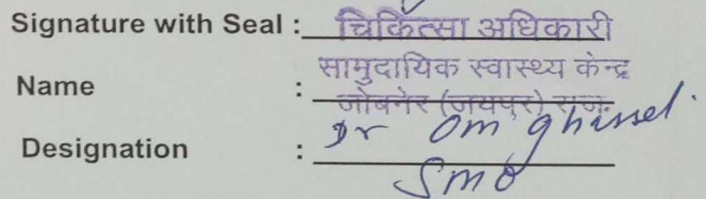 Signature with Seal : चिकित्सा अधिकारी
सामुदायिक स्वास्थ्य केन्द्र
Name :
जोबनेर (जयपुर) राज.
Dr Om
Designation :
SMO